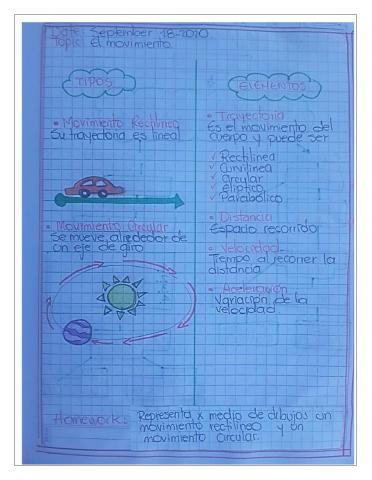 Date: September 18-2020
Topic: El movimiento.
TIPOS
• Movimiento Rectilinea
Su trayectoria es lineal
• Movimiento Circular
Se mueve alrededor de
un eje de giro
ELEMENTOS
• Trayectoria
Es el movimiento del
cuerpo y puede ser
✓ Rectilinea
✓ Curvilinea
✓ Circular
✓ Elíptico
✓ Parabólico
• Distancia
Espacio recorrido
• Velocidad
Tempo al recorrer la
distancia
• Aceleración
Variación de la
velocidad
Homework: Representa x medio de dibujos un
movimiento rectilíneo y un
movimiento circular.